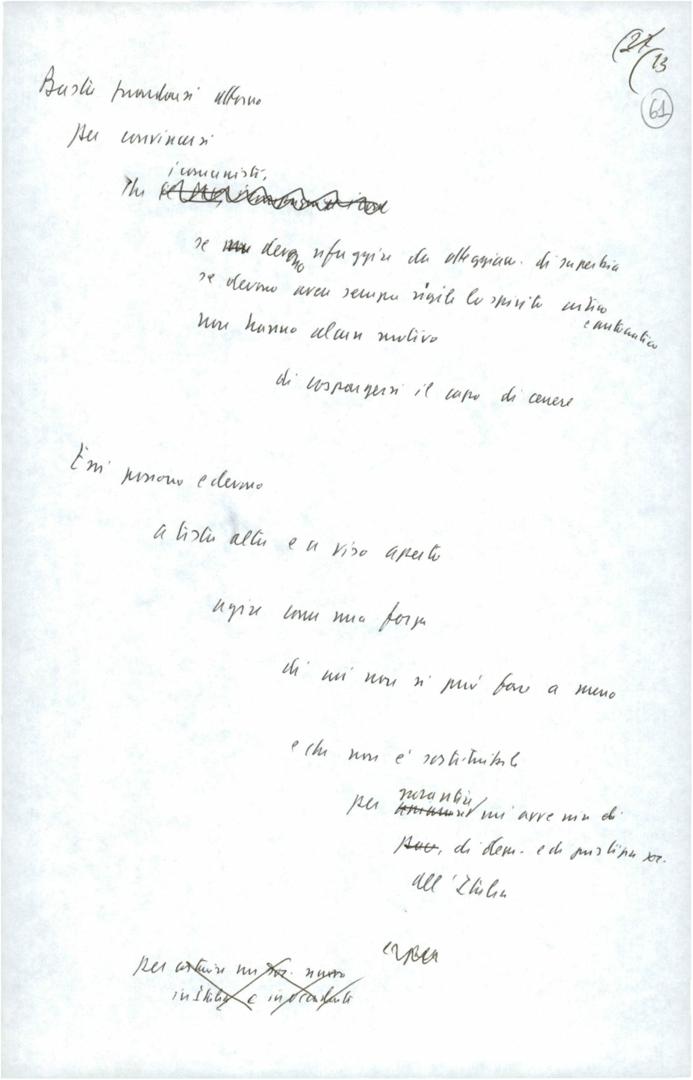 61
Basta guardarsi attorno
per convincersi
i comunisti,
che
se devono rifuggire da atteggiam. di superbia
se devono aver sempre vigile lo spirito critico
e autocritico
non hanno alcun motivo
di cospargersi il capo di cenere
Essi possono e devono
a testa alta e a viso aperto
agire come una forza
di cui non si può fare a meno
e che non è sostituibile
per garantire un avvenire di
pace, di dem. e di giustizia soc.
all'Italia
per costruire un soc. nuovo
in Italia e in occidente